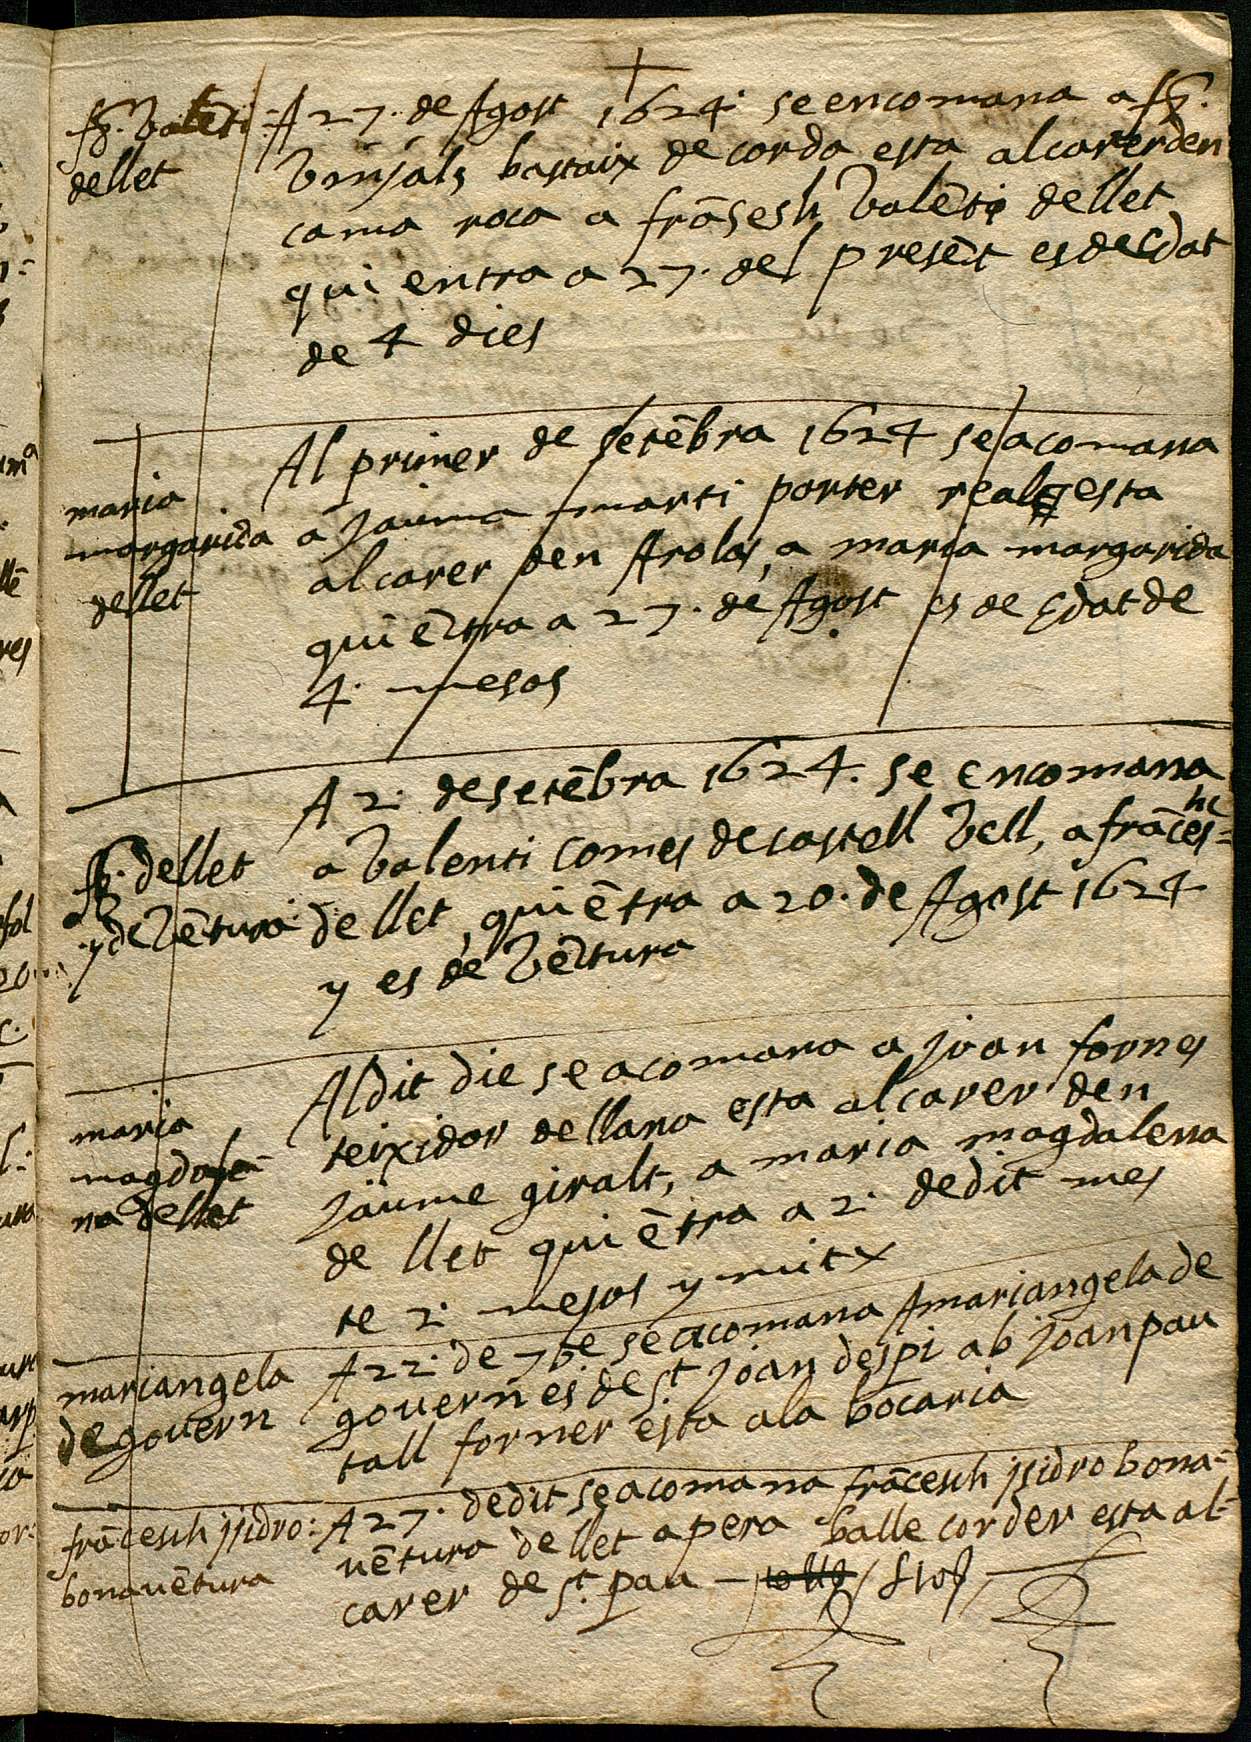 +
fr. Valēti dellet
A 27. de Agost 1624. se encomana a fr.
Vinyals bastaix de corda esta al carer den
cama roca a frāsesh Valēti dellet
qui entra a 27. del presēt es de edat
de 4 dies
maria margarida dellet
Al primer de Setēbra 1624 se acomana
a Jaume marti porter real esta
al carer den Arolas, a maria margarida
qui ētra a 27. de Agost es de edat de
4. mesos
fr. dellet y de Vētura
A 2. de setēbra 1624. se encomana
a Valenti Comes de castell Vell, a frāces=
dellet, qui ētra a 20. de Agost 1624
y es de Vētura
maria magdale=
na dellet
Al dit die se acomana a joan fornes
teixidor de llana esta al carer den
jaume giralt, a maria magdalena
de llet qui ētra a 2. de dit mes
te 2. mesos y mitx
mariangela
de govern
A 22. de 7be se acomana A mariangela de
govern es de St. joan despi ab joan pau
tall forner esta a la bocaria
frācesch jsidro
bonavētura
A 27. de dit se acomana frācesch jsidro bona=
vētura de llet a pera balle corder esta al
carer de St. pau